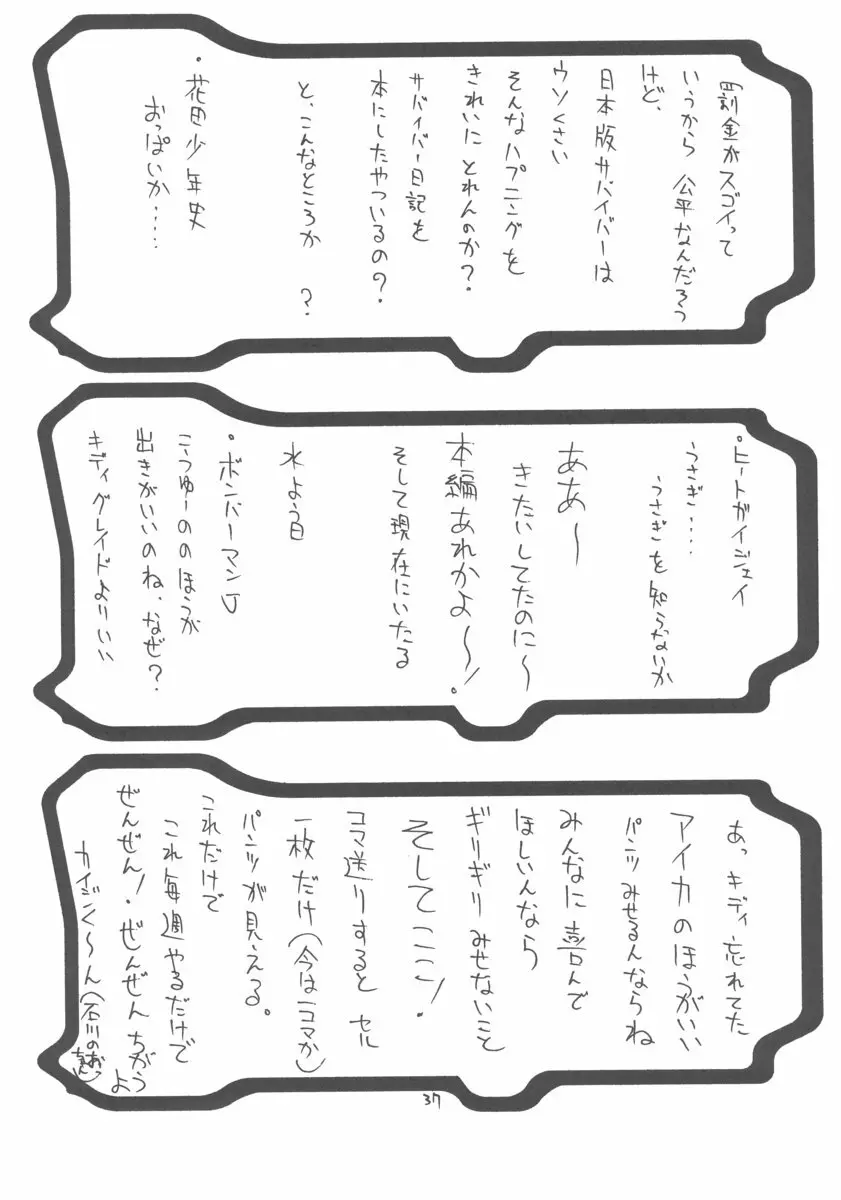 罰金がスゴイって
いうから 公平なんだろう
けど、
日本版サバイバーは
ウソくさい
そんなハプニングを
きれいに とれんのか?
サバイバー日記を
本にしたやついるの?
と、こんなところか ?
・花田少年史
おっぱいか……
・ヒートガイジェイ
うさぎ…
うさぎを知らないか
ああ〜
きたいしてたのに〜
本編あれかよ〜!。
そして現在にいたる
水よう日
・ボンバーマンJ
こうゆーののほうが
出きがいいのね、なぜ?
キディグレイドよりいい
あっ キディ 忘れてた
アイカのほうがいい
パンツみせるんならね
みんなに喜んで
ほしいんなら
ギリギリ みせないこと
そしてここ!
コマ送りすると セル
一枚だけ(今は一コマか)
パンツが見える。
これだけで
これ毎週やるだけで
ぜんぜん!・ぜんぜん ちがうよ
カイジンく〜ん(石川のおっちゃん)
37